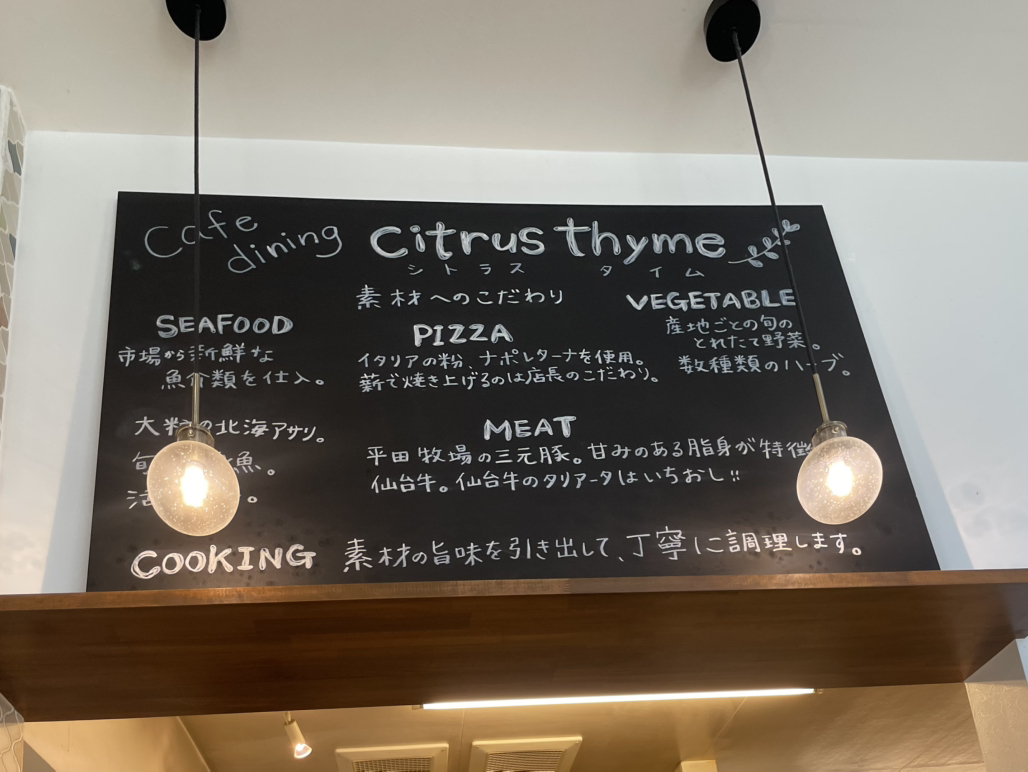 Cafe dining citrus thyme
シトラス タイム
素材へのこだわり
SEAFOOD
市場から新鮮な
魚介類を仕入。
大粒の北海アサリ。
旬 魚。
活 。
PIZZA
イタリアの粉、ナポレターナを使用。
薪で焼き上げるのは店長のこだわり。
VEGETABLE
産地ごとの旬の
とれたて野菜。
数種類のハーブ。
MEAT
平田牧場の三元豚。甘みのある脂身が特徴
仙台牛。仙台牛のタリアータはいちおし!!
COOKING
素材の旨味を引き出して、丁寧に調理します。